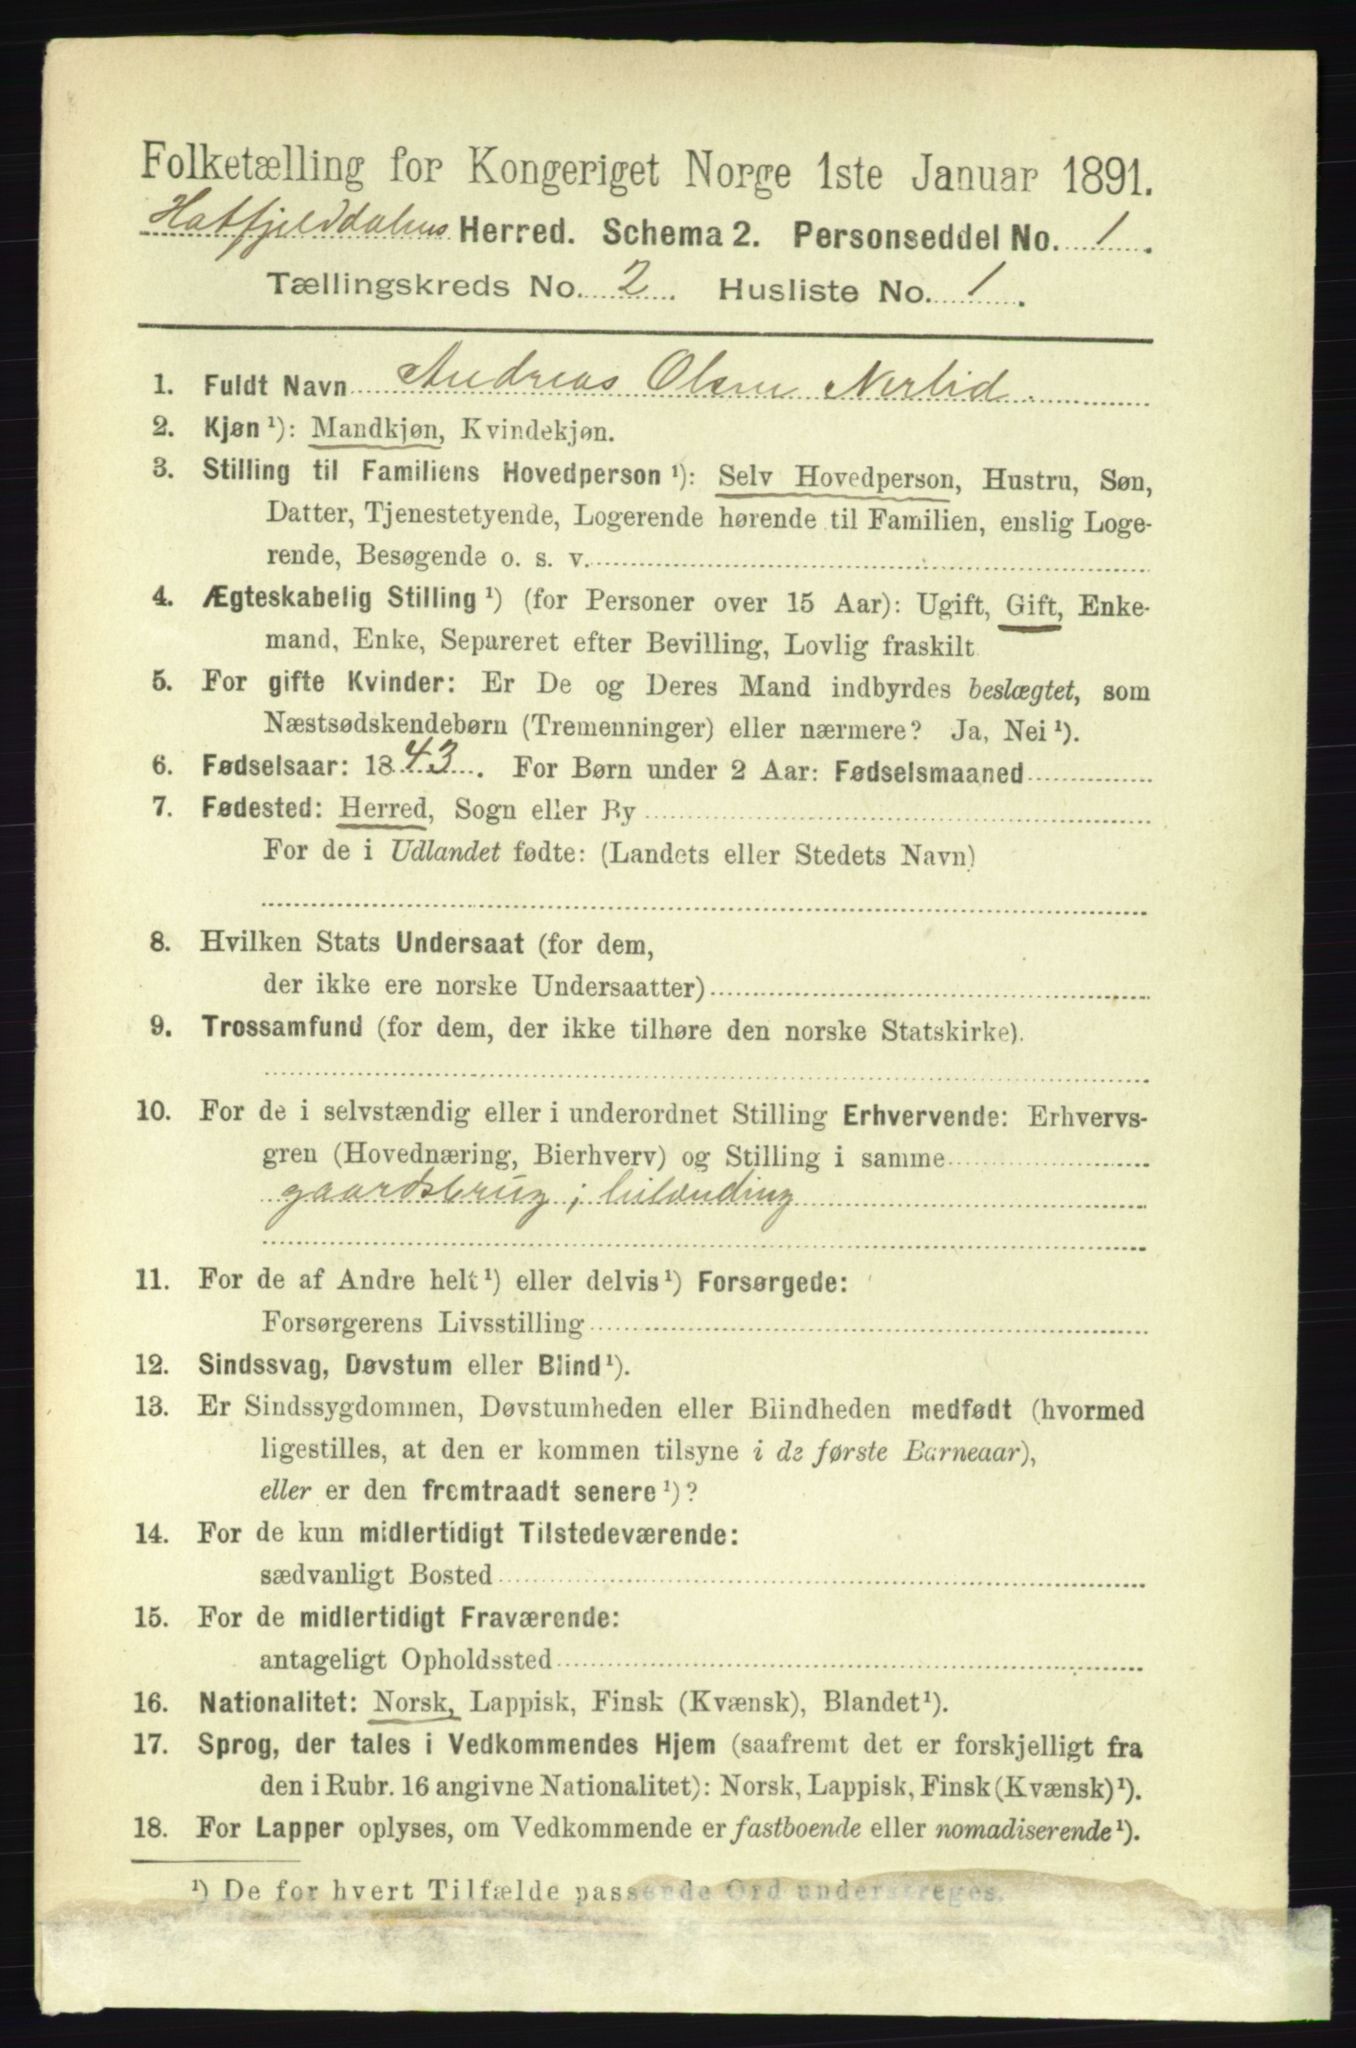 Folketælling for Kongeriget Norge 1ste Januar 1891.
Hatfjelddalens Herred. Schema 2. Personseddel No. 1.
Tællingskreds No. 2. Husliste No. 1.
1. Fuldt Navn Andreas Olsen Nerlid
2. Kjøn¹): Mandkjøn, Kvindekjøn.
3. Stilling til Familiens Hovedperson¹): Selv Hovedperson, Hustru, Søn,
Datter, Tjenestetyende, Logerende hørende til Familien, enslig Loge-
rende, Besøgende o. s. v.
4. Ægteskabelig Stilling¹) (for Personer over 15 Aar): Ugift, Gift, Enke-
mand, Enke, Separeret efter Bevilling, Lovlig fraskilt
5. For gifte Kvinder: Er De og Deres Mand indbyrdes beslægtet, som
Næstsødskendebørn (Tremenninger) eller nærmere? Ja, Nei¹).
6. Fødselsaar: 1843. For Børn under 2 Aar: Fødselsmaaned
7. Fødested: Herred, Sogn eller By
For de i Udlandet fødte: (Landets eller Stedets Navn)
8. Hvilken Stats Undersaat (for dem,
der ikke ere norske Undersaatter)
9. Trossamfund (for dem, der ikke tilhøre den norske Statskirke).
10. For de i selvstændig eller i underordnet Stilling Erhvervende: Erhvervs-
gren (Hovednæring, Bierhverv) og Stilling i samme
gaardsbrug;
11. For de af Andre helt¹) eller delvis¹) Forsørgede:
Forsørgerens Livsstilling
12. Sindssvag, Døvstum eller Blind¹).
13. Er Sindssygdommen, Døvstumheden eller Blindheden medfødt (hvormed
ligestilles, at den er kommen tilsyne i de første Barneaar),
eller er den fremtraadt senere¹)?
14. For de kun midlertidigt Tilstedeværende:
sædvanligt Bosted
15. For de midlertidigt Fraværende:
antageligt Opholdssted
16. Nationalitet: Norsk, Lappisk, Finsk (Kvænsk), Blandet¹).
17. Sprog, der tales i Vedkommendes Hjem (saafremt det er forskjelligt fra
den i Rubr. 16 angivne Nationalitet): Norsk, Lappisk, Finsk (Kvænsk)¹).
18. For Lapper oplyses, om Vedkommende er fastboende eller nomadiserende¹).
¹) De for hvert Tilfælde passende Ord understreges.